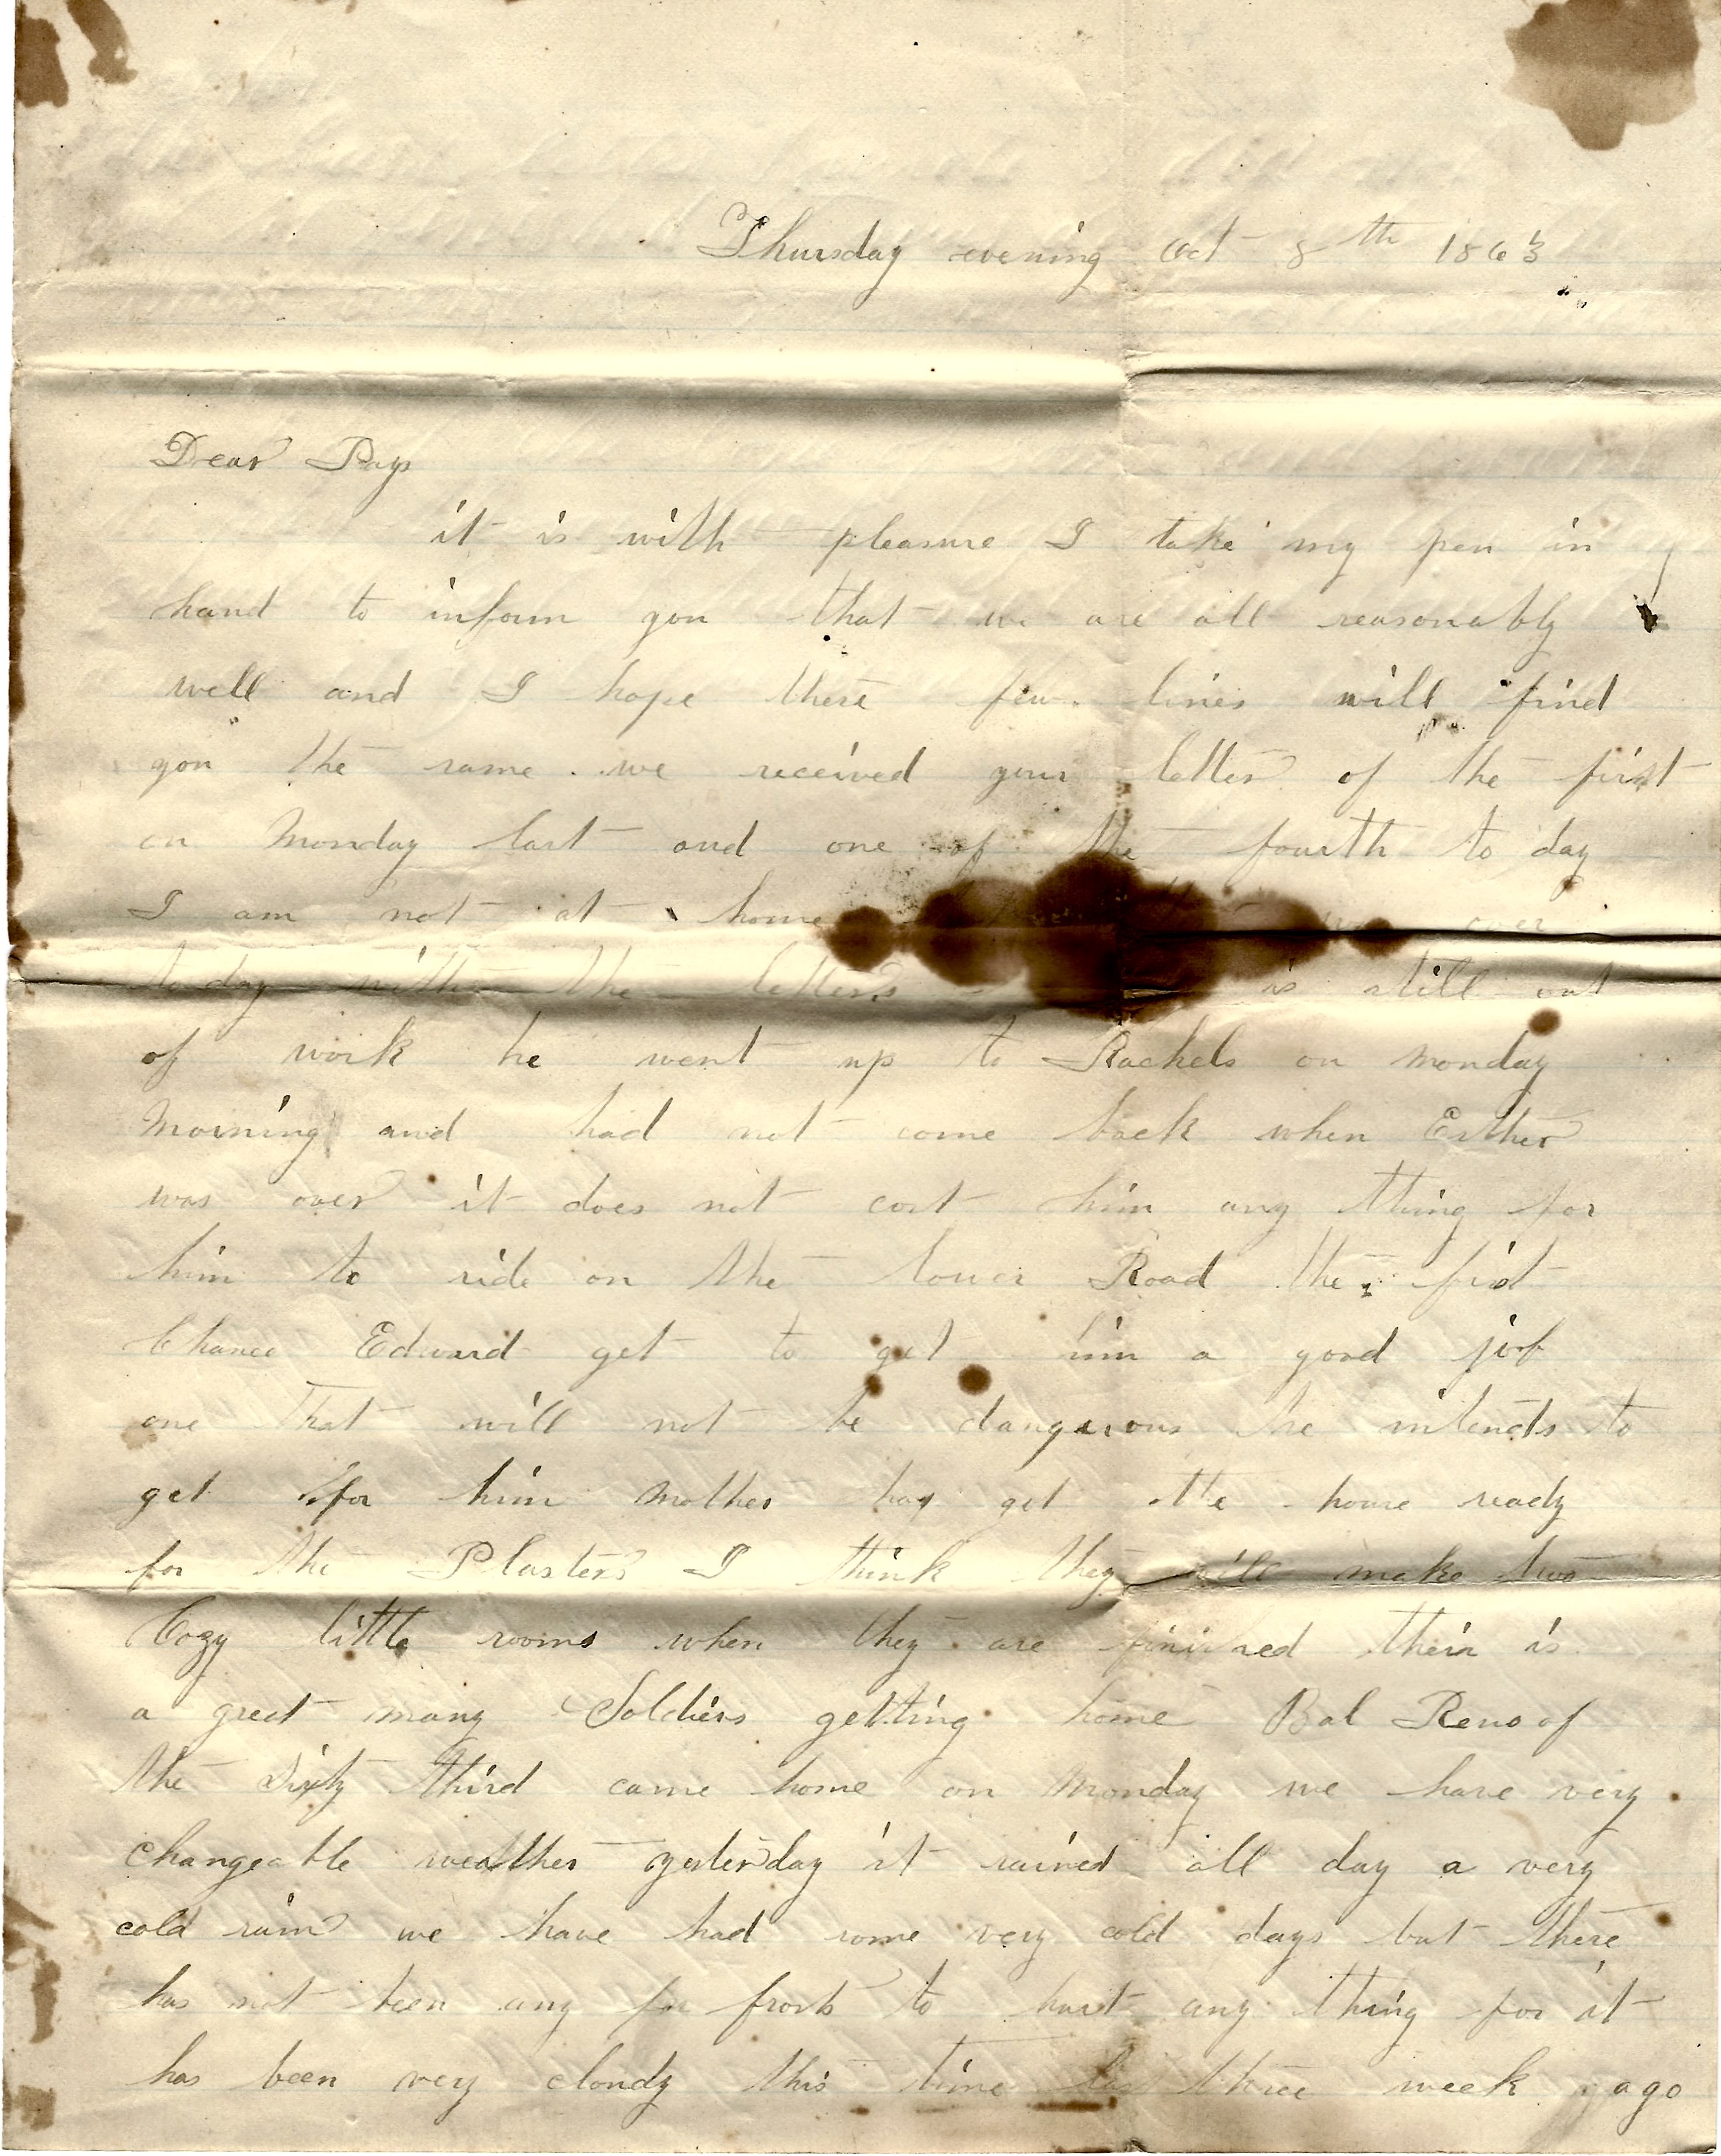 Thursday evening Oct 8th 1863
Dear Pays
it is with pleasure I take my pen in
hand to inform you that we are all reasonably
well and I hope these few lines will find
you the same. we received your letter of the first
on Monday last and one of the fourth to day
I am not at home over
to day with the letters is still out
of work he went up to Rachels on monday
Morning and had not come back when Esther
was over it does not cost him any thing for
him to ride on the tower Road the first
Chance Edward get to get him a good job
one That will not be dangerous he intends to
get for him Mother has got the house ready
for the Plasters I think they will make two
Cozy little rooms when they are finished their is
a great many Soldiers getting home Bal Reno of
the Sixty third came home on Monday we have very
changeable weather yesterday it rained all day a very
cold rain we have had some very cold days but there
has not been any fr frosts to hurt any thing for it
has been very cloudy this time last three week ago